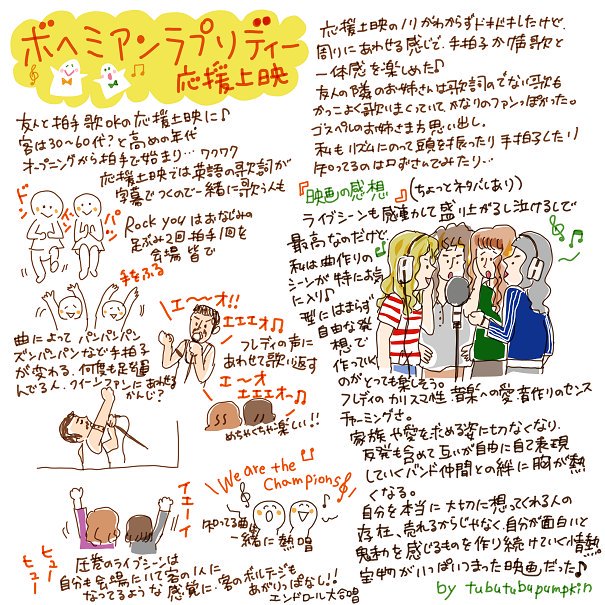 ボヘミアンラプソディー
応援上映
友人と拍手歌OKの応援上映に♪
客は30〜60代？と高めの年代
オープニングから拍手で始まり…ワクワク
応援上映では英語の歌詞が
字幕でつくので一緒に歌う人も
ドン
ドン
パン
Rock youはおなじみの
足ぶみ2回拍手1回を
会場皆で
手をふる
曲によって パンパンパン
ズンパンパンなど手拍子
が変わる。何度も足を運
んでる人、クイーンファンにあわせる
かんじ？
エ〜〜オ!!
エエエオ♫
フレディの声に
あわせて歌い返す
エ〜オ
エエエオ〜♫
めちゃくちゃ楽しい!!
We are the
Champions
知ってる曲も
一緒に熱唱
イエーイ
ヒュー
ヒュー
圧巻のライブシーンは
自分も会場にいて客の1人に
なってるような感覚に。客のボルテージも
あがりっぱなし!!
エンドロール大合唱
応援上映のノリがわからずドキドキしたけど、
周りにあわせる感じで、手拍子か情歌と
一体感を楽しめた♪
友人の隣のお姉さんは歌詞のでない歌も
かっこよく歌いまくっていて、かなりのファンっぽかった。
ゴスペルのお姉さま方思い出し。
私もリズムにのって頭を振ったり手拍子したり
知ってるのは口ずさんでみたり…
『映画の感想』(ちょっとネタバレあり)
ライブシーンも感動かして盛り上がるし泣けるしで
最高なのだけど、
私は曲作りの
シーンが特にお気
に入り♪
型にはまらず
自由な発
想で
作っていく
のがとっても楽しそう。
フレディのカリスマ性 音楽への愛 音作りのセンス
チャーミングさ。
家族や愛を求める姿に切なくなり、
反発も含めて互いが自由に自己表現
していくバンド仲間との絆に胸が熱
くなる。
自分を本当に大切に想ってくれる人の
存在、売れるからじゃなく、自分が面白いと
鬼動を感じるものを作り続けていく情熱
宝物がいっぱいつまった映画だった♪
by tubutubupumpkin